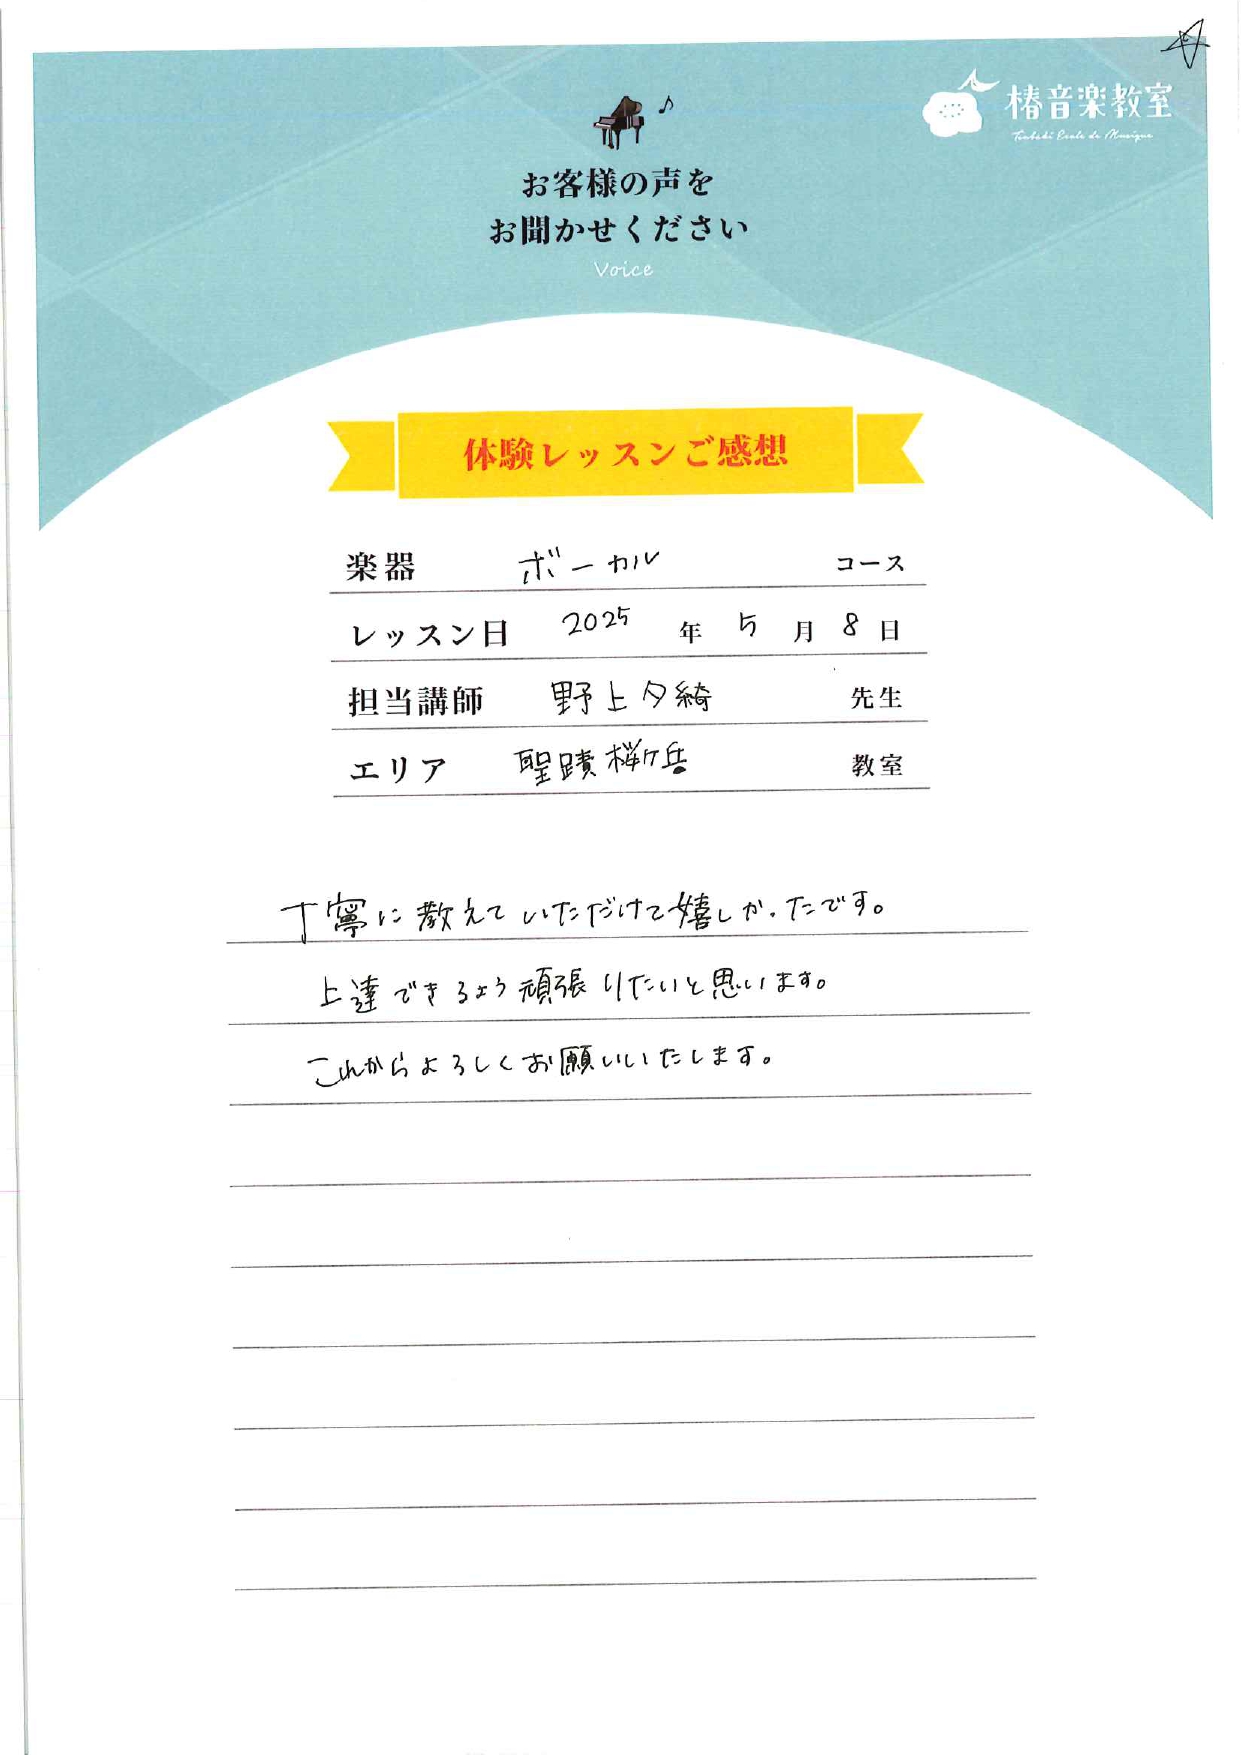 椿音楽教室
Tsubaki Ecole de Musique
お客様の声を
お聞かせください
Voice
体験レッスンご感想
楽器 ボーカル コース
レッスン日 2025 年 5 月 8 日
担当講師 野上夕綺 先生
エリア 聖蹟桜ケ丘 教室
丁寧に教えていただけて嬉しかったです。
上達できるよう頑張りたいと思います。
これからよろしくお願いいたします。